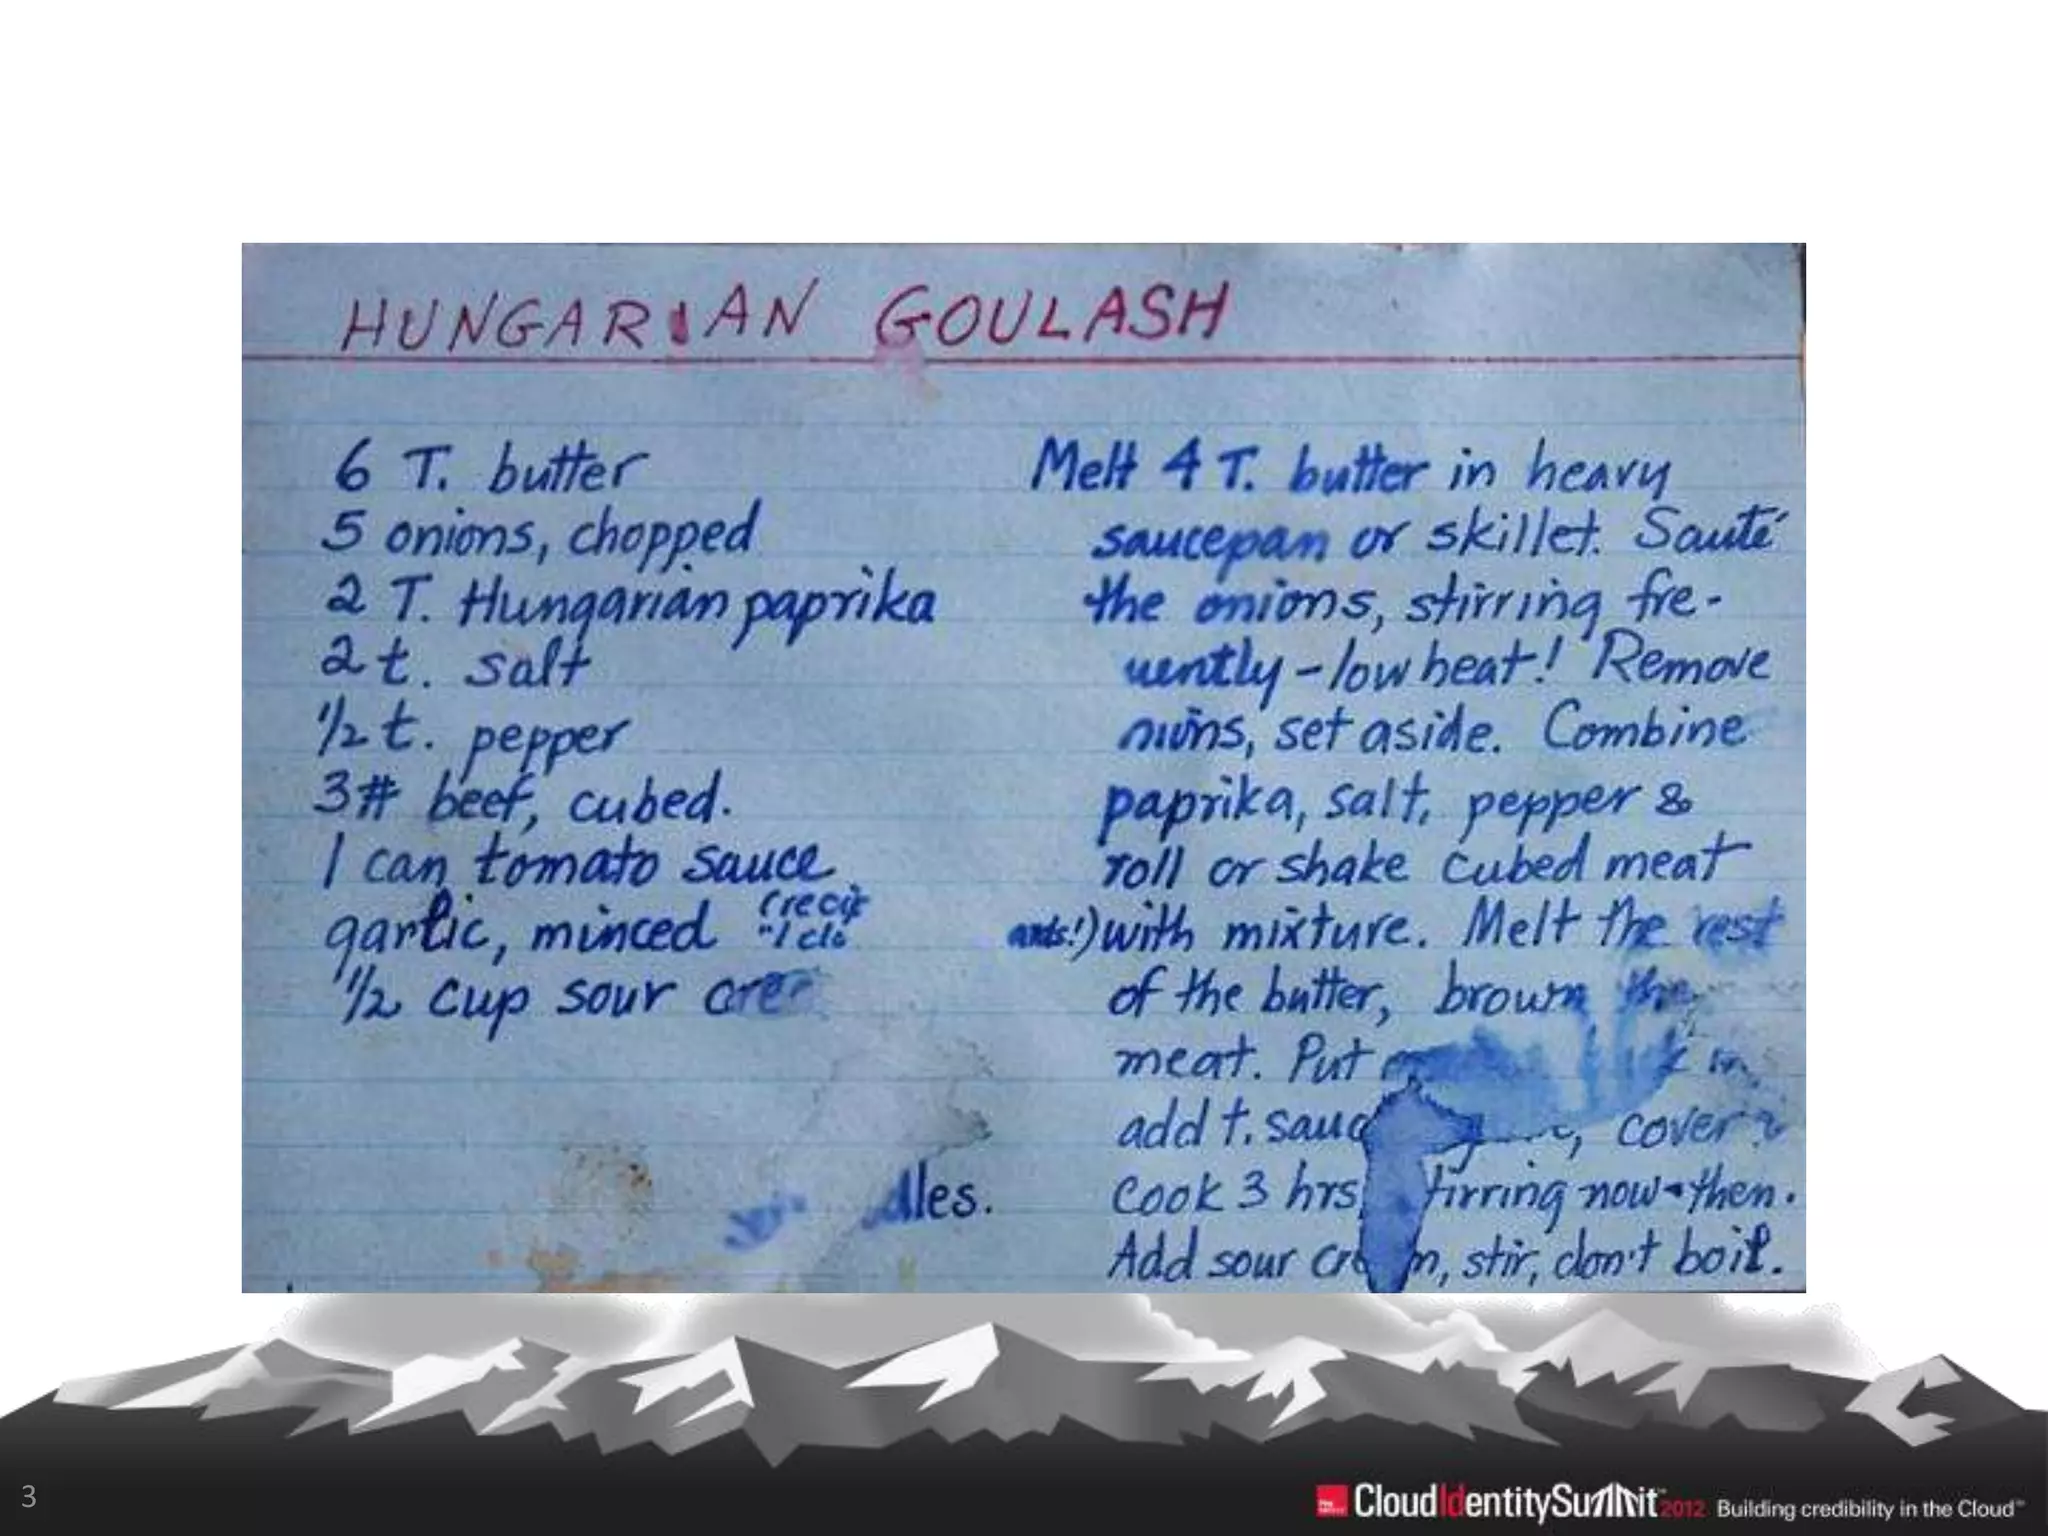 HUNGARIAN GOULASH
6 T. butter
5 onions, chopped
2 T. Hungarian paprika
2 t. salt
1/2 t. pepper
3# beef, cubed.
1 can tomato sauce
garlic, minced
1/2 cup sour
Melt 4 T. butter in heavy
saucepan or skillet. Sauté
the onions, stirring fre-
uently - low heat! Remove
set aside. Combine
paprika, salt, pepper &
roll or shake cubed meat
with mixture. Melt the rest
of the butter, brown the
meat. Put
add t. cover
Cook 3 hrs now & then.
Add sour stir, don't boil.
3
CloudIdentitySummit 2012 Building credibility in the Cloud